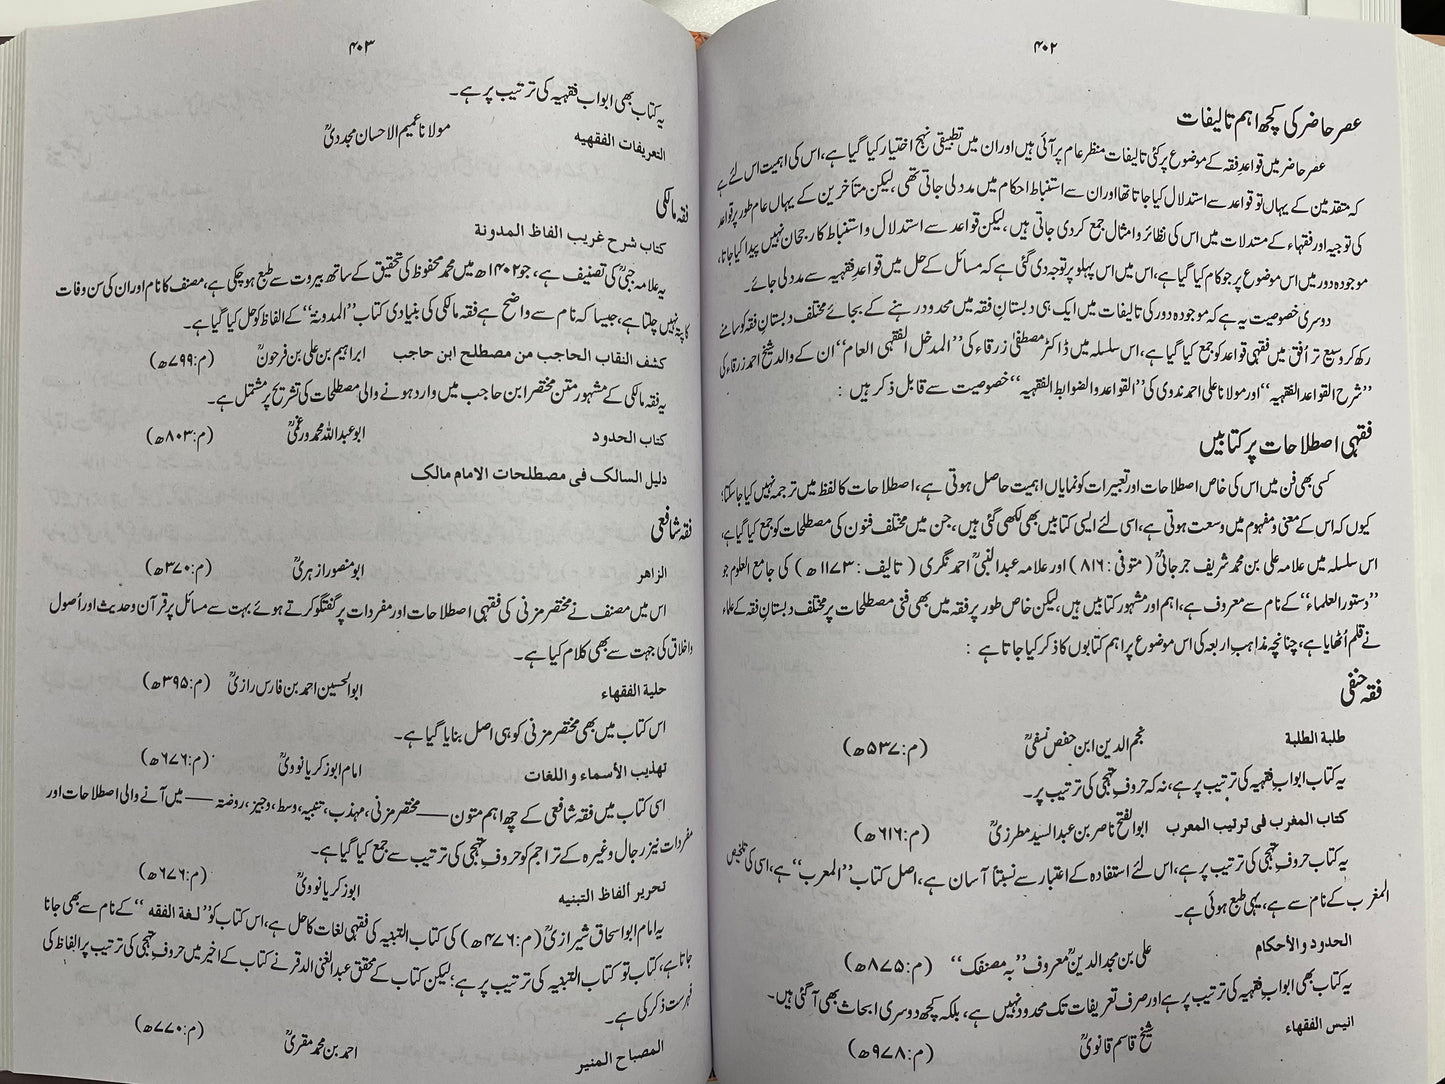 ۴۰۲
عصر حاضر کی کچھ اہم تالیفات
عصر حاضر میں قواعدِ فقہ کے موضوع پر کئی تالیفات منظر عام پر آئی ہیں اور ان میں تطبیقی نہج اختیار کیا گیا ہے، اس کی اہمیت اس لئے ہے
کہ متقدمین کے یہاں تو قواعد سے استدلال کیا جاتا تھا اور ان سے استنباط احکام میں مدد لی جاتی تھی، لیکن متأخرین کے یہاں عام طور پر قواعد
کی توجیہ اور فقہاء کے مستدلات میں اس کی نظائر و امثال جمع کردی جاتی ہیں، لیکن قواعد سے استدلال و استنباط کا رجحان نہیں پیدا کیا جاتا،
موجودہ دور میں اس موضوع پر جو کام کیا گیا ہے، اس میں اس پہلو پر توجہ دی گئی ہے کہ مسائل کے حل میں قواعدِ فقہیہ سے مدد لی جائے۔
دوسری خصوصیت یہ ہے کہ موجودہ دور کی تالیفات میں ایک ہی دبستانِ فقہ میں محدود رہنے کے بجائے مختلف دبستانِ فقہ کو سامنے
رکھ کر وسیع تر اُفق میں فقہی قواعد کو جمع کیا گیا ہے، اس سلسلہ میں ڈاکٹر مصطفیٰ زرقاء کی ’’المدخل الفقهی العام‘‘ ان کے والد شیخ احمد زرقاء کی
’’شرح القواعد الفقهیه‘‘ اور مولانا علی احمد ندوی کی ’’القواعد والضوابط الفقهیه‘‘ خصوصیت سے قابل ذکر ہیں :
فقہی اصطلاحات پر کتابیں
کسی بھی فن میں اس کی خاص اصطلاحات اور تعبیرات کو نمایاں اہمیت حاصل ہوتی ہے، اصطلاحات کا لفظ میں ترجمہ نہیں کیا جاسکتا؛
کیوں کہ اس کے معنی و مفہوم میں وسعت ہوتی ہے، اسی لئے ایسی کتابیں بھی لکھی گئی ہیں، جن میں مختلف فنون کی مصطلحات کو جمع کیا گیا ہے،
اس سلسلہ میں علامہ علی بن محمد شریف جرجانیؒ (متوفی : ۸۱۶) اور علامہ عبدالنبیؒ احمد نگری ( تالیف : ۱۱۷۳ھ ) کی جامع العلوم جو
’’دستور العلماء‘‘ کے نام سے معروف ہے، اہم اور مشہور کتابیں ہیں، لیکن خاص طور پر فقہ میں بھی فنی مصطلحات پر مختلف دبستانِ فقہ کے علماء
نے قلم اُٹھایا ہے، چنانچہ مذاہب اربعہ کی اس موضوع پر اہم کتابوں کا ذکر کیا جاتا ہے :
فقہ حنفی
طلبة الطلبة نجم الدین ابن حفص نسفیؒ (م: ۵۳۷ھ)
یہ کتاب ابواب فقہیہ کی ترتیب پر ہے، نہ کہ حروف تہجی کی ترتیب پر۔
کتاب المغرب فی ترتیب المعرب ابوالفتح ناصر بن عبدالسید مطرزیؒ (م: ۶۱۶ھ)
یہ کتاب حروف تہجی کی ترتیب پر ہے، اس لئے استفادہ کے اعتبار سے نسبتاً آسان ہے، اصل کتاب ’’المعرب‘‘ ہے، اسی کی تلخیص
المغرب کے نام سے ہے، یہی طبع ہوئی ہے۔
الحدود والأحکام علی بن مجدالدینؒ معروف ’’بہ مصنفک‘‘ (م: ۸۷۵ھ)
یہ کتاب بھی ابوابِ فقہیہ کی ترتیب پر ہے اور صرف تعریفات تک محدود نہیں ہے، بلکہ کچھ دوسری ابحاث بھی آگئی ہیں۔
انیس الفقهاء شیخ قاسم قانویؒ (م: ۹۷۸ھ)
۴۰۳
یہ کتاب بھی ابواب فقہیہ کی ترتیب پر ہے۔
التعریفات الفقهیه مولانا عمیم الاحسان مجددیؒ
فقہ مالکی
کتاب شرح غریب الفاظ المدونة
یہ علامہ جبیؒ کی تصنیف ہے، جو ۱۴۰۲ھ میں محمد محفوظ کی تحقیق کے ساتھ بیروت سے طبع ہوچکی ہے، مصنف کا نام اور ان کی سن وفات
کا پتہ نہیں چلتا ہے، جیسا کہ نام سے واضح ہے فقہ مالکی کی بنیادی کتاب ’’المدونۃ‘‘ کے الفاظ کو حل کیا گیا ہے۔
کشف النقاب الحاجب من مصطلح ابن حاجب ابراہیم بن علی بن فرحونؒ (م: ۷۹۹ھ)
یہ فقہ مالکی کے مشہور متن مختصر ابن حاجب میں وارد ہونے والی مصطلحات کی تشریح پر مشتمل ہے۔
کتاب الحدود ابوعبداللہ محمد ورغمیؒ (م: ۸۰۳ھ)
دلیل السالک فی مصطلحات الامام مالک
فقہ شافعی
الزاهر ابو منصور ازہریؒ (م: ۳۷۰ھ)
اس میں مصنف نے مختصر مزنی کی فقہی اصطلاحات اور مفردات پر گفتگو کرتے ہوئے بہت سے مسائل پر قرآن و حدیث اور اُصول
واخلاق کی جہت سے بھی کلام کیا ہے۔
حلیة الفقهاء ابوالحسین احمد بن فارس رازیؒ (م: ۳۹۵ھ)
اس کتاب میں بھی مختصر مزنی کو ہی اصل بنایا گیا ہے۔
تهذیب الأسماء واللغات امام ابوزکریا نوویؒ (م: ۶۷۶ھ)
اسی کتاب میں فقہ شافعی کے چھ اہم متون —— مختصر مزنی، مہذب، تنبیہ، وسط، وجیز، روضۃ —— میں آنے والی اصطلاحات اور
مفردات نیز رجال وغیرہ کے تراجم کو حروف تہجی کی ترتیب سے جمع کیا گیا ہے۔
تحریر ألفاظ التنبیه ابوزکریا نوویؒ (م: ۶۷۶ھ)
یہ امام ابواسحاق شیرازیؒ (م: ۴۷۶ھ) کی کتاب التنبیہ کی فقہی لغات کا حل ہے، اس کتاب کو ’’لغة الفقه‘‘ کے نام سے بھی جانا
جاتا ہے، کتاب تو کتاب التنبیہ کی ترتیب پر ہے؛ لیکن کتاب کے محقق عبدالغنی الدقر نے کتاب کے اخیر میں حروف تہجی کی ترتیب پر الفاظ کی
فہرست ذکر کی ہے۔
المصباح المنیر احمد بن محمد مقریؒ (م: ۷۷۰ھ)